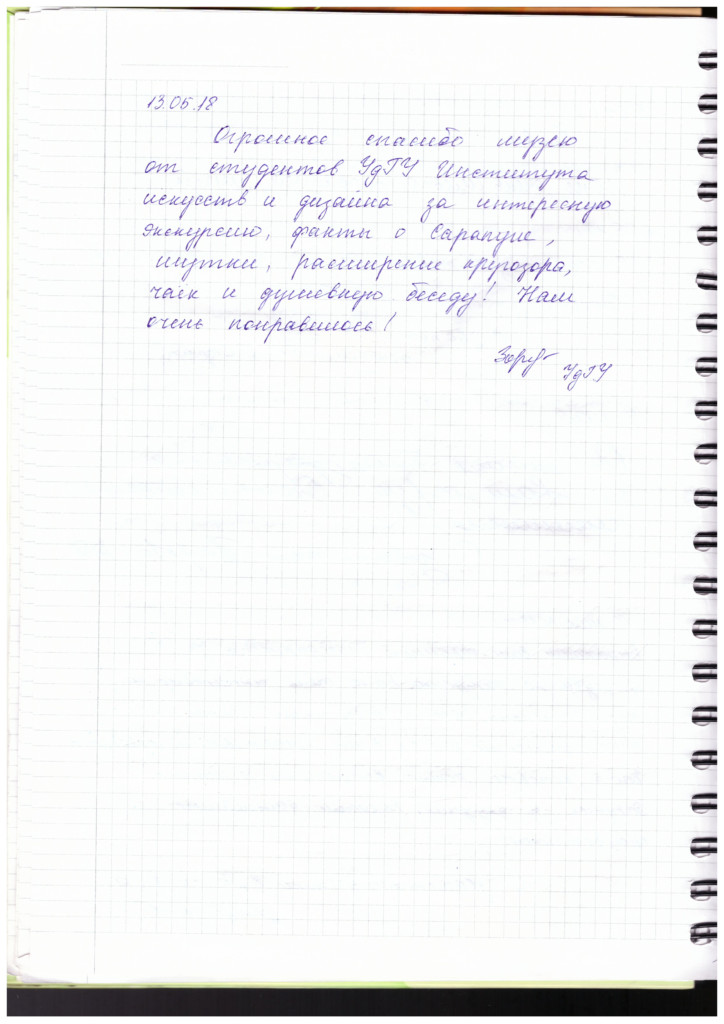 13.05.18
Огромное спасибо музею
от студентов УдГУ Института
искусств и дизайна за интересную
экскурсию, факты о Сарапуле,
шутки, расширение кругозора,
чаек и душевную беседу! Нам
очень понравилось!
УдГУ